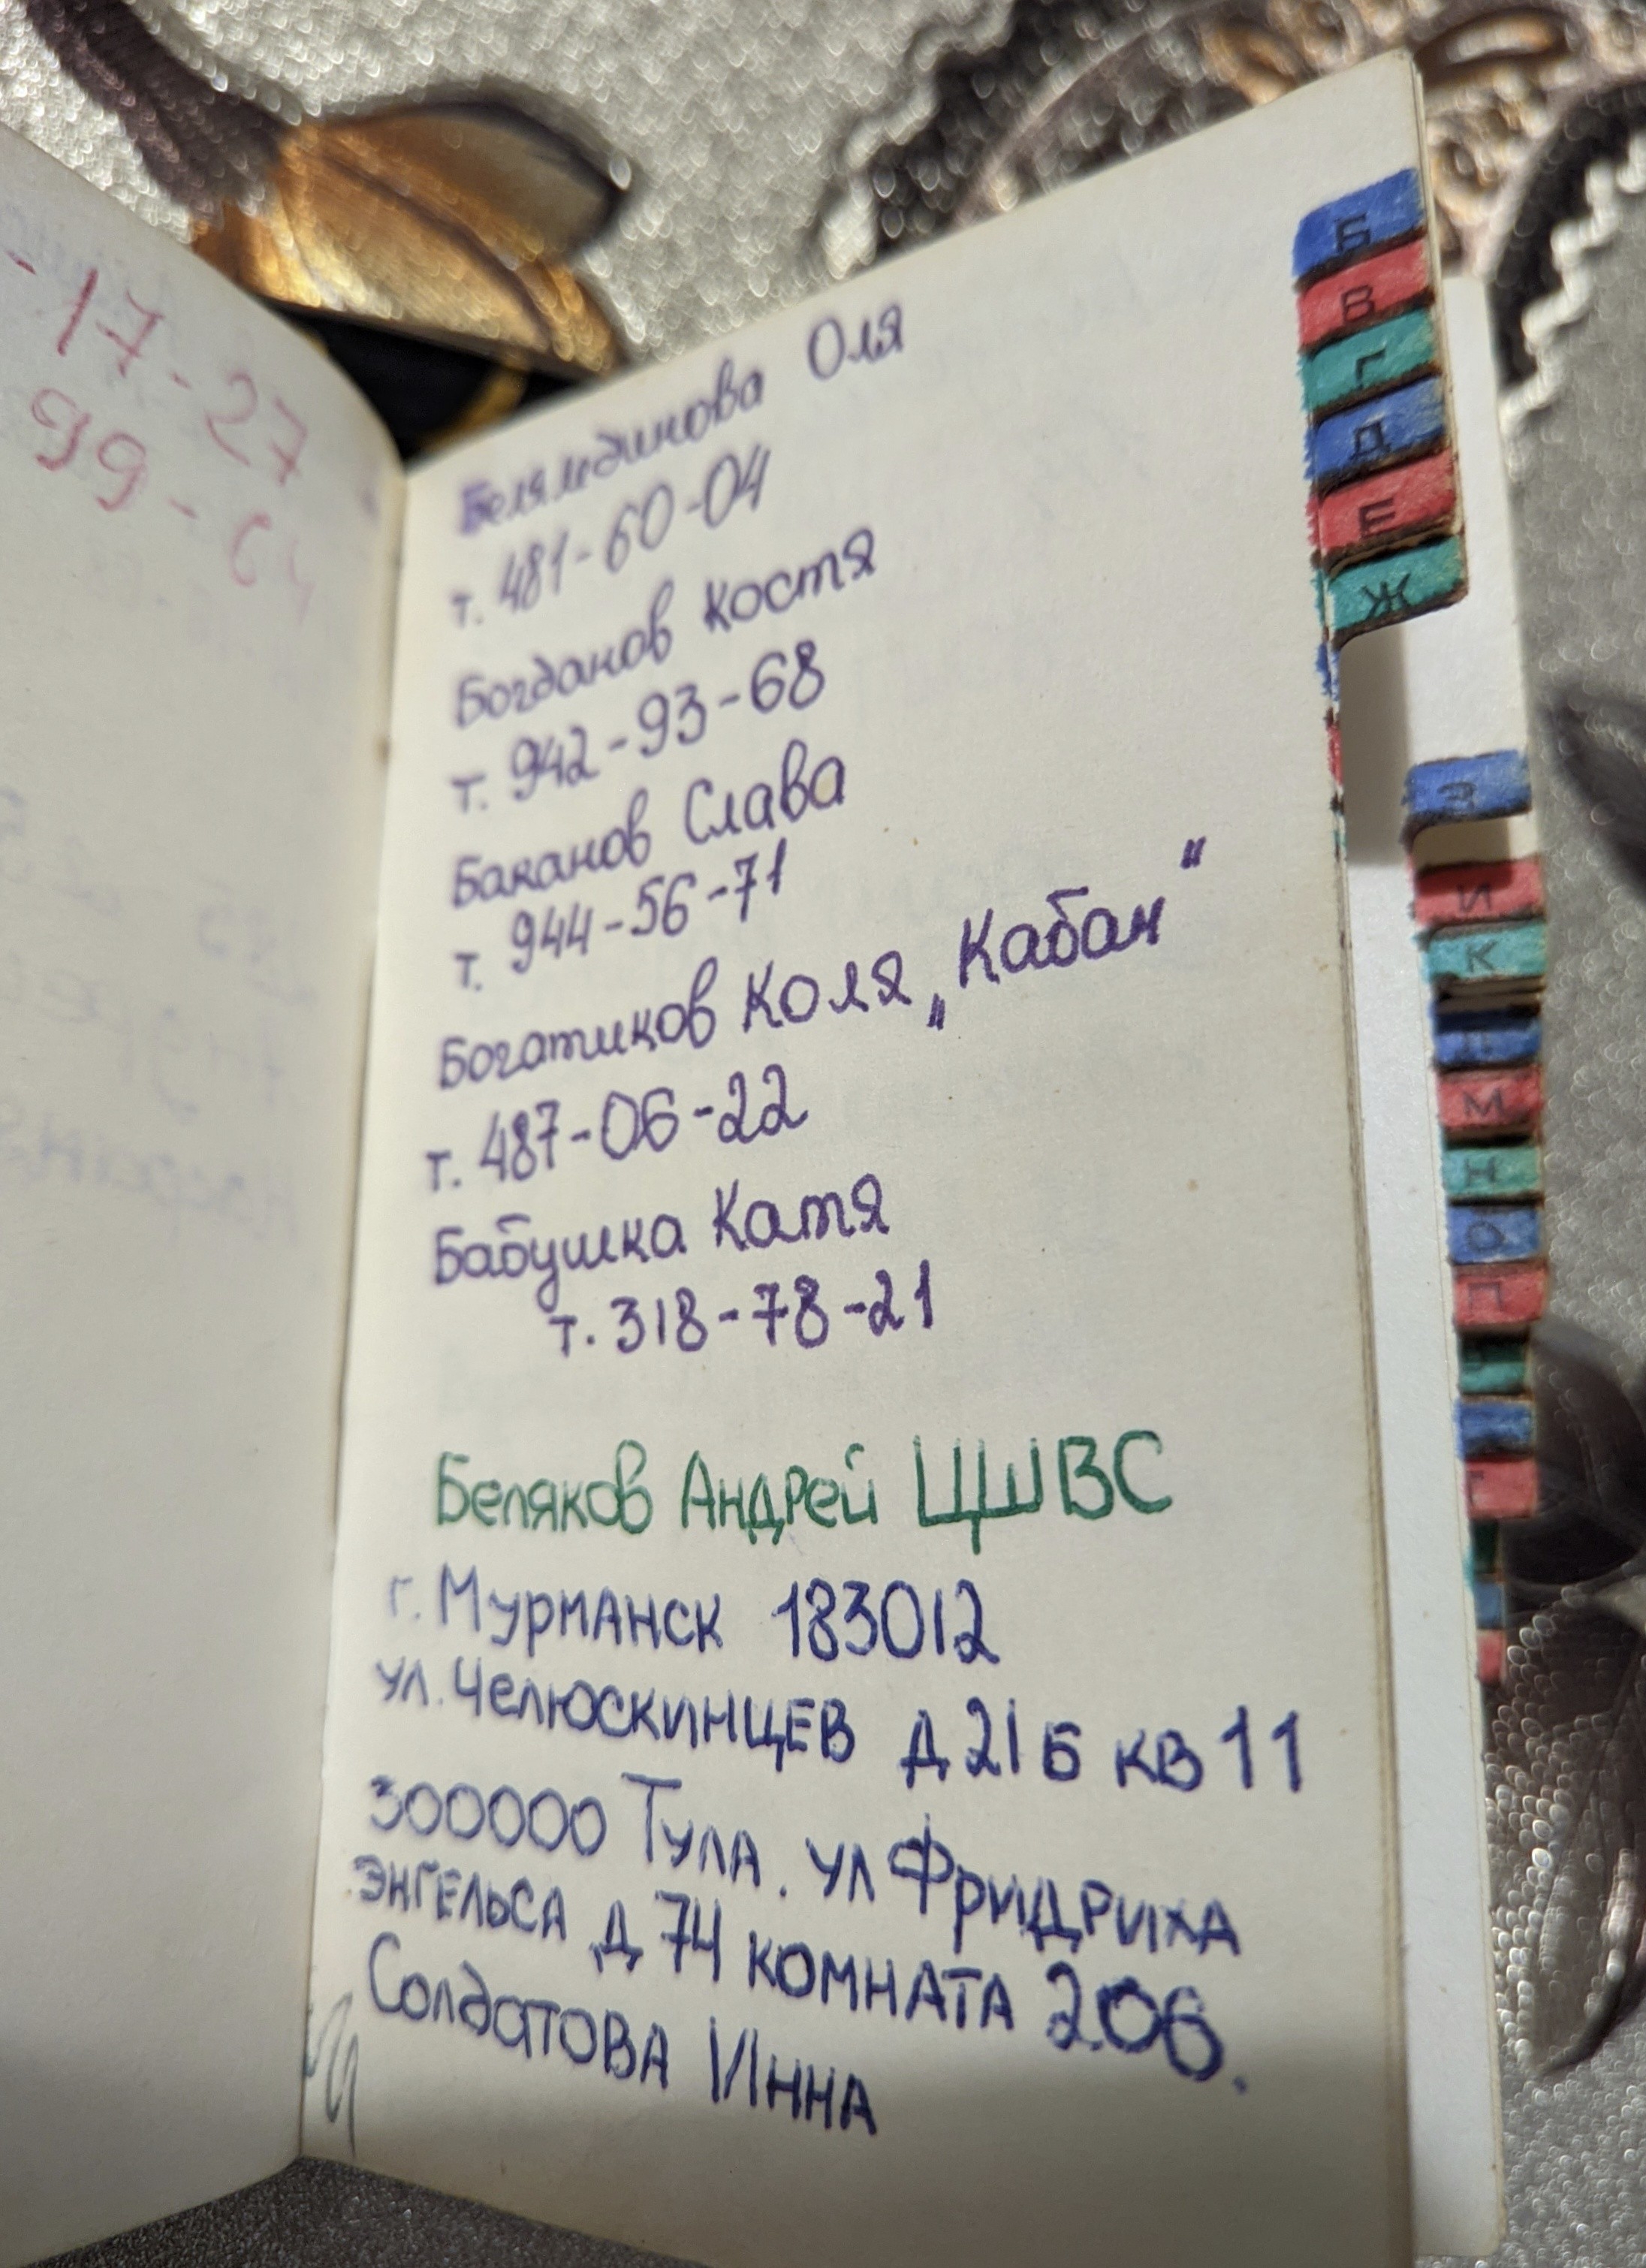 -17-27
99-64
Белямдинова Оля
т. 481-60-04
Богданов Костя
т. 942-93-68
Баканов Слава
т. 944-56-71
Богатиков Коля „Кабан"
т. 487-06-22
Бабушка Катя
т. 318-78-21
Беляков Андрей ЦШВС
г. Мурманск 183012
ул. Челюскинцев д 21 Б кв 11
300000 Тула. ул Фридриха
Энгельса д 74 комната 206.
Солдатова Инна
Б
В
Г
Д
Е
Ж
З
И
К
Л
М
Н
О
П